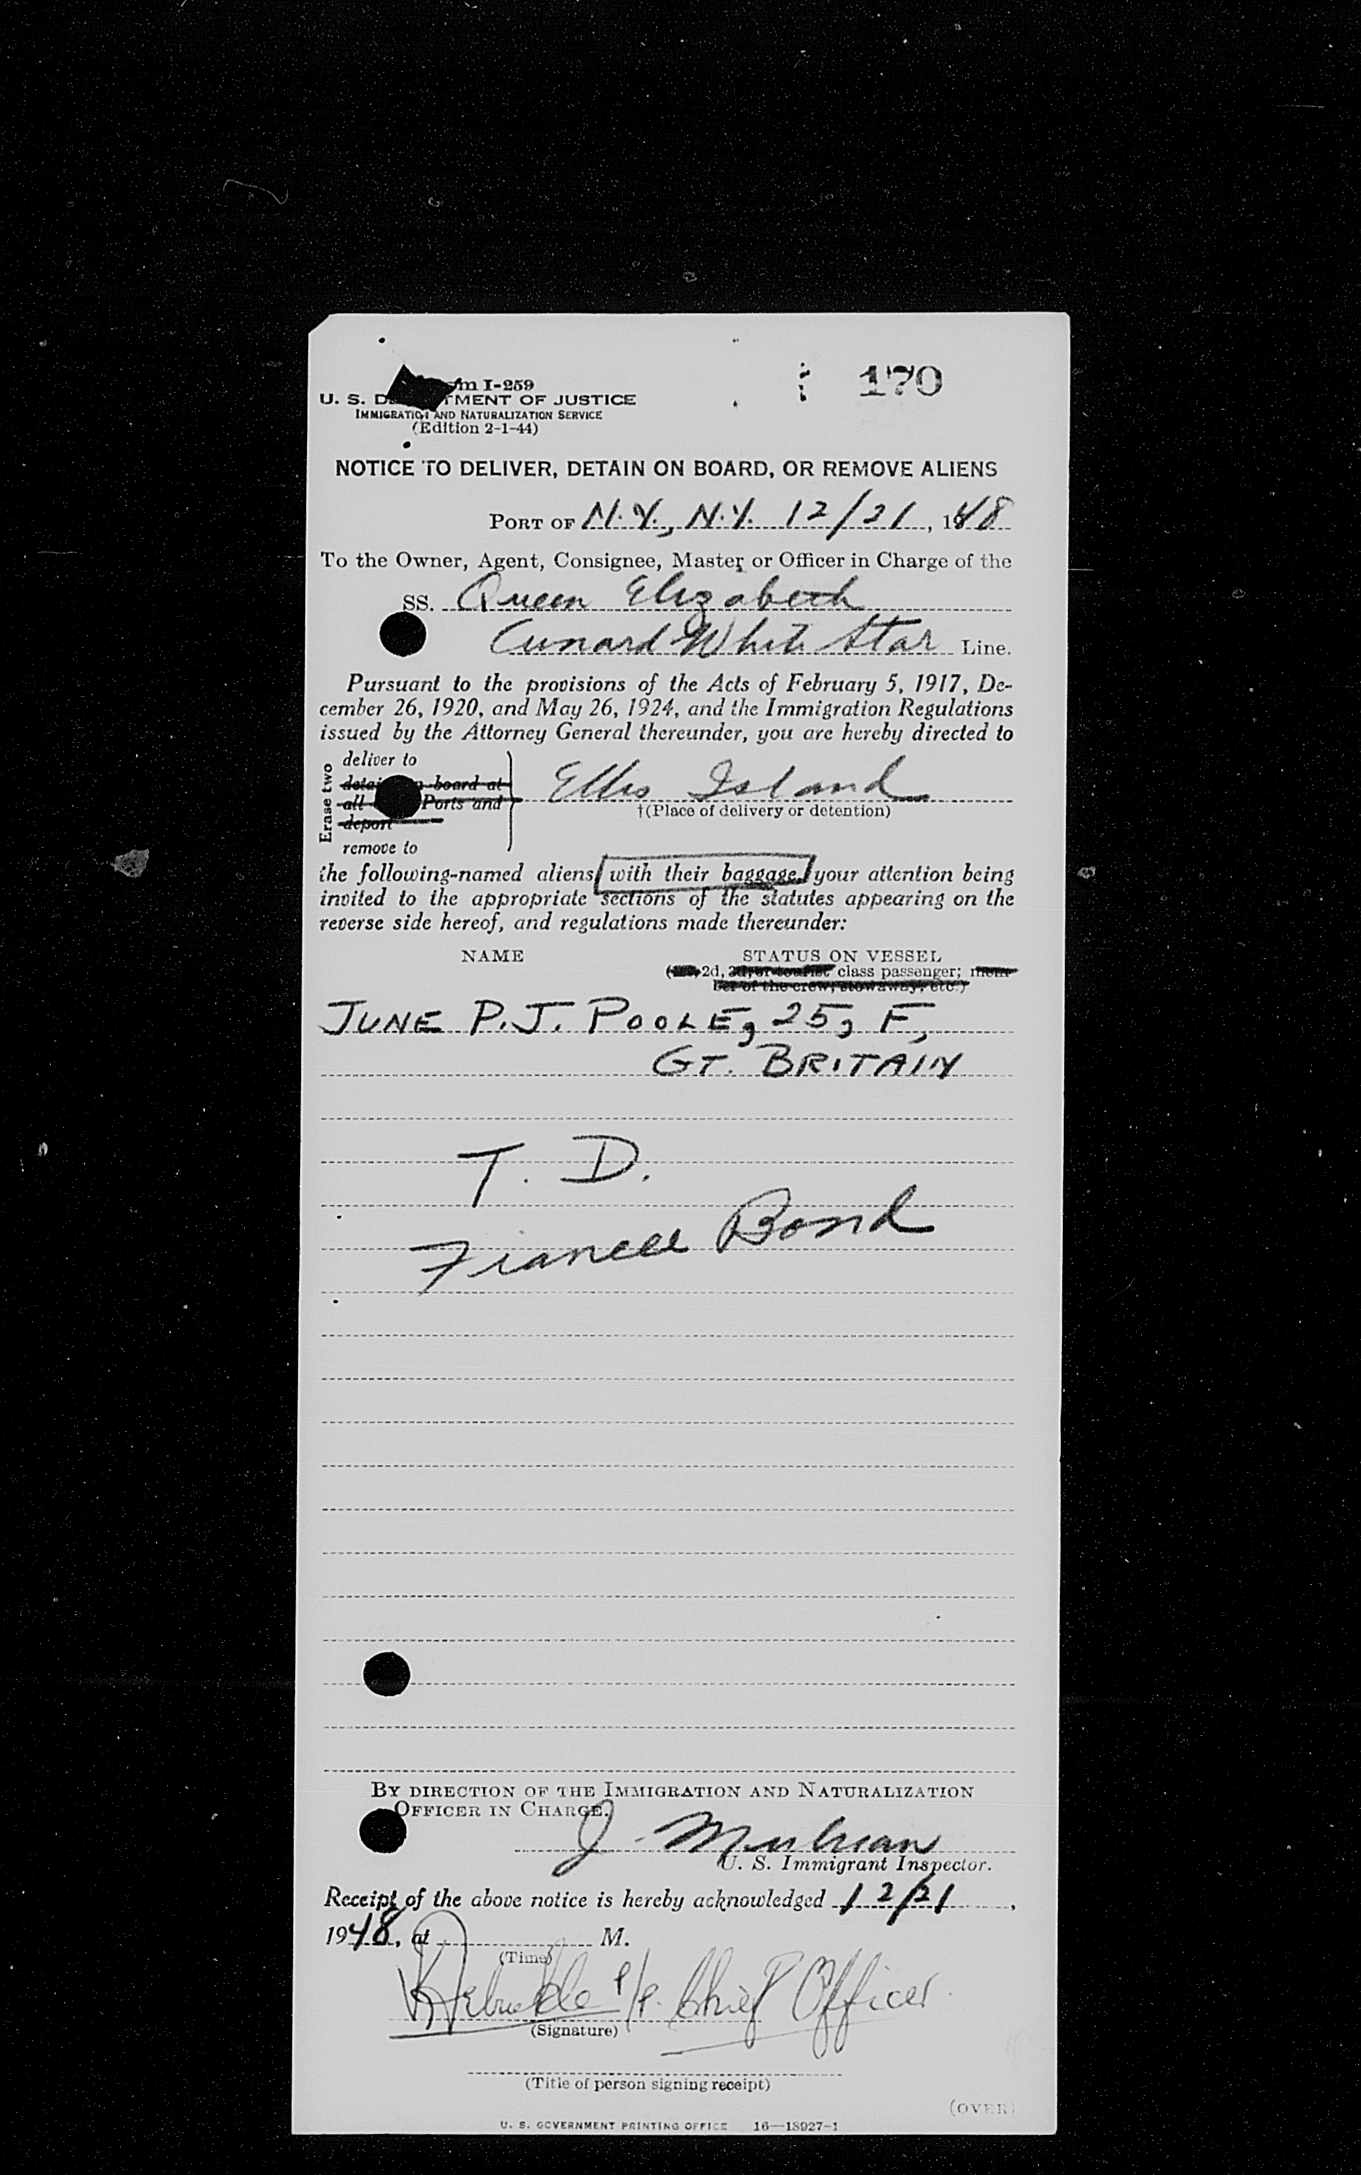 170
Form I-259
U. S. DEPARTMENT OF JUSTICE
IMMIGRATION AND NATURALIZATION SERVICE
(Edition 2-1-44)
NOTICE TO DELIVER, DETAIN ON BOARD, OR REMOVE ALIENS
PORT OF N.Y., N.Y. 12/21, 1948
To the Owner, Agent, Consignee, Master or Officer in Charge of the
SS. Queen Elizabeth
Cunard White Star Line.
Pursuant to the provisions of the Acts of February 5, 1917, De-
cember 26, 1920, and May 26, 1924, and the Immigration Regulations
issued by the Attorney General thereunder, you are hereby directed to
Erase two
deliver to
detain on board at
all Ports and
deport
remove to
Ellis Island
†(Place of delivery or detention)
the following-named aliens with their baggage, your attention being
invited to the appropriate sections of the statutes appearing on the
reverse side hereof, and regulations made thereunder:
NAME STATUS ON VESSEL
2d, 3d, or tourist class passenger; mem-
ber of the crew, stowaway, etc.)
JUNE P.J. POOLE, 25, F,
GT. BRITAIN
T. D.
Fiancee Bond
BY DIRECTION OF THE IMMIGRATION AND NATURALIZATION
OFFICER IN CHARGE.
J.
U. S. Immigrant Inspector.
Receipt of the above notice is hereby acknowledged 12/21,
1948, at M.
(Time)
Chief Officer
(Signature)
(Title of person signing receipt)
(OVER)
U. S. GOVERNMENT PRINTING OFFICE 16—18927-1